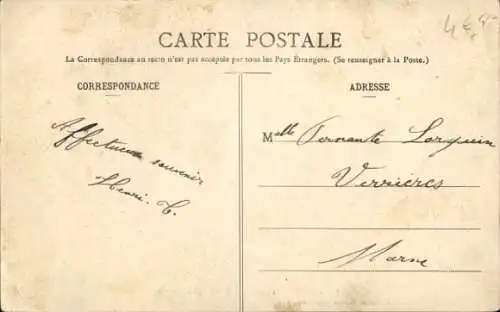 CARTE POSTALE
La Correspondance au recto n'est pas acceptée par tous les Pays Étrangers. (Se renseigner à la Poste.)
CORRESPONDANCE
Affectueux souvenir
Henri. C.
ADRESSE
Melle Fernante Lorquin
Verrières
Marne